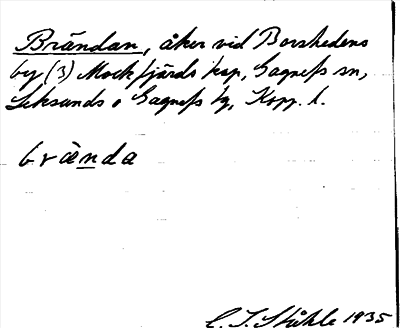 Brändan, åker vid Borshedens
by (3) Mockfjärds kap, Gagnefs sn,
Leksands o Gagnefs tg, Kopp. l.
brända
C. I. Ståhle 1935